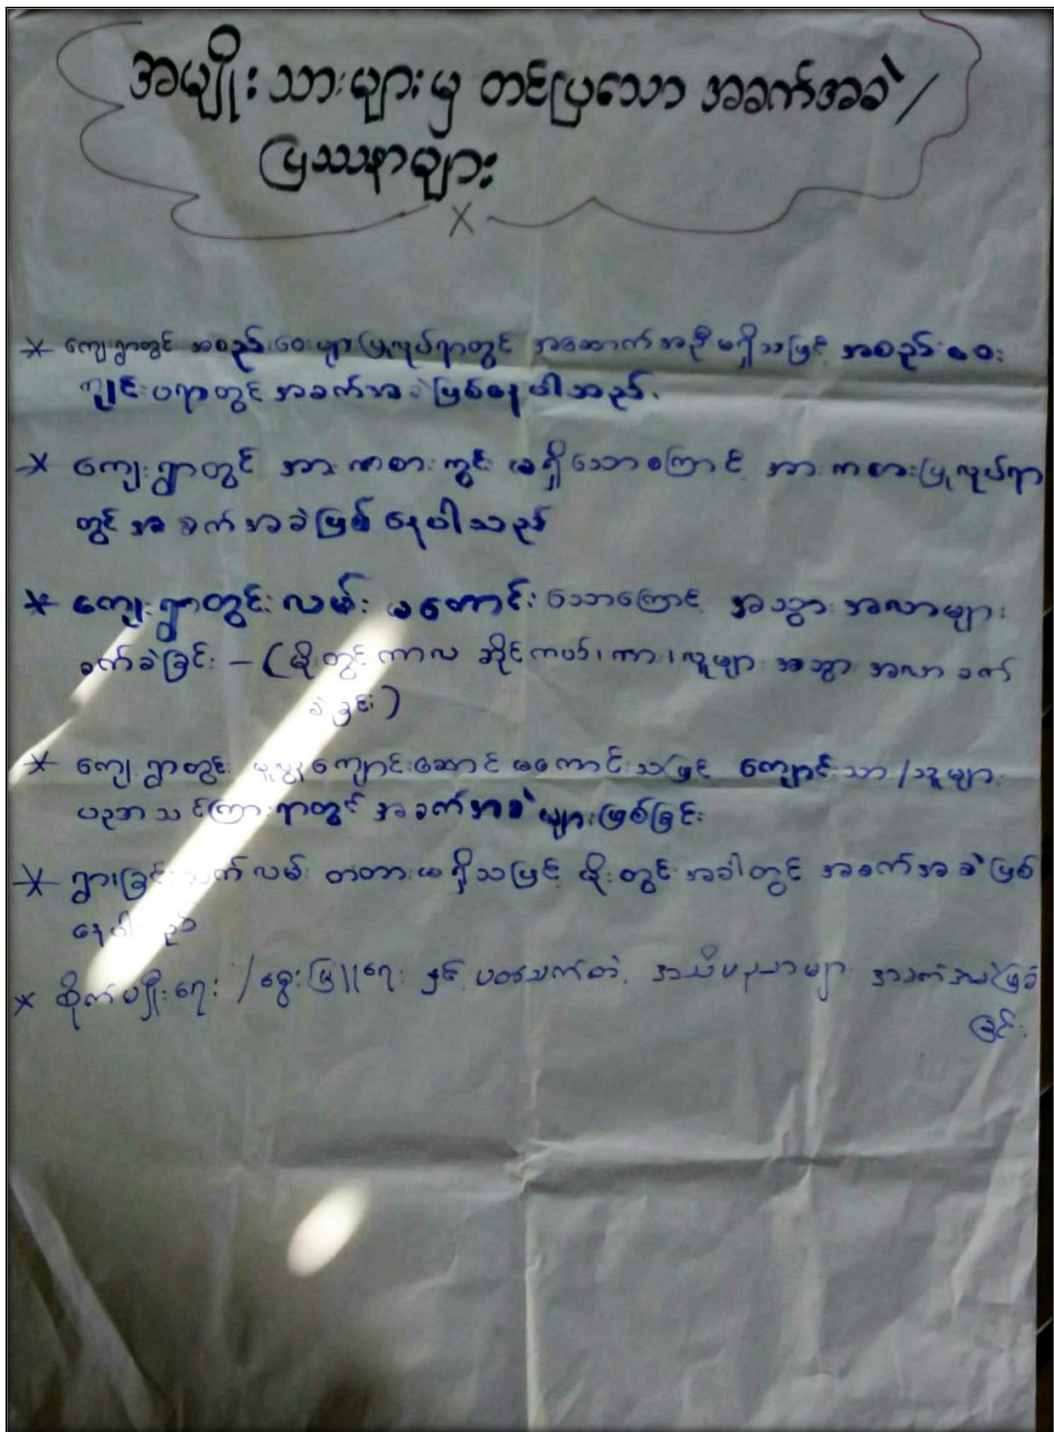 အမျိုးသားများမှ တင်ပြသော အခက်အခဲ/
ပြဿနာများ
X
* ကျေးရွာတွင် အစည်းဝေးများပြုလုပ်ရာတွင် အဆောက်အဦမရှိသဖြင့် အစည်းဝေး
ကျင်းပရာတွင်အခက်အခဲဖြစ်နေပါသည်.
* ကျေးရွာတွင် အားကစားကွင်း မရှိသောကြောင့် အားကစားပြုလုပ်ရာ
တွင်အခက်အခဲဖြစ်နေပါသည်
* ကျေးရွာတွင်းလမ်း မကောင်းသောကြောင့် အသွားအလာများ
ခက်ခဲခြင်း – (မိုးတွင်ကာလ ဆိုင်ကယ်၊ကား၊လူများ အသွားအလာ ခက်
ခဲခြင်း)
* ကျေးရွာတွင်း မူလွန်ကျောင်းဆောင် မကောင်းသဖြင့် ကျောင်းသား/သူများ
ပညာသင်ကြားရာတွင်အခက်အခဲများဖြစ်ခြင်း
* ရွာခြင်းဆက်လမ်း တံတားမရှိသဖြင့် မိုးတွင်းအခါတွင် အခက်အခဲဖြစ်
နေပါသည်
* စိုက်ပျိုးရေး/မွေးမြူရေး နှင့် ပတ်သက်တဲ့ အသိပညာများ အခက်အခဲဖြစ်
ခြင်း